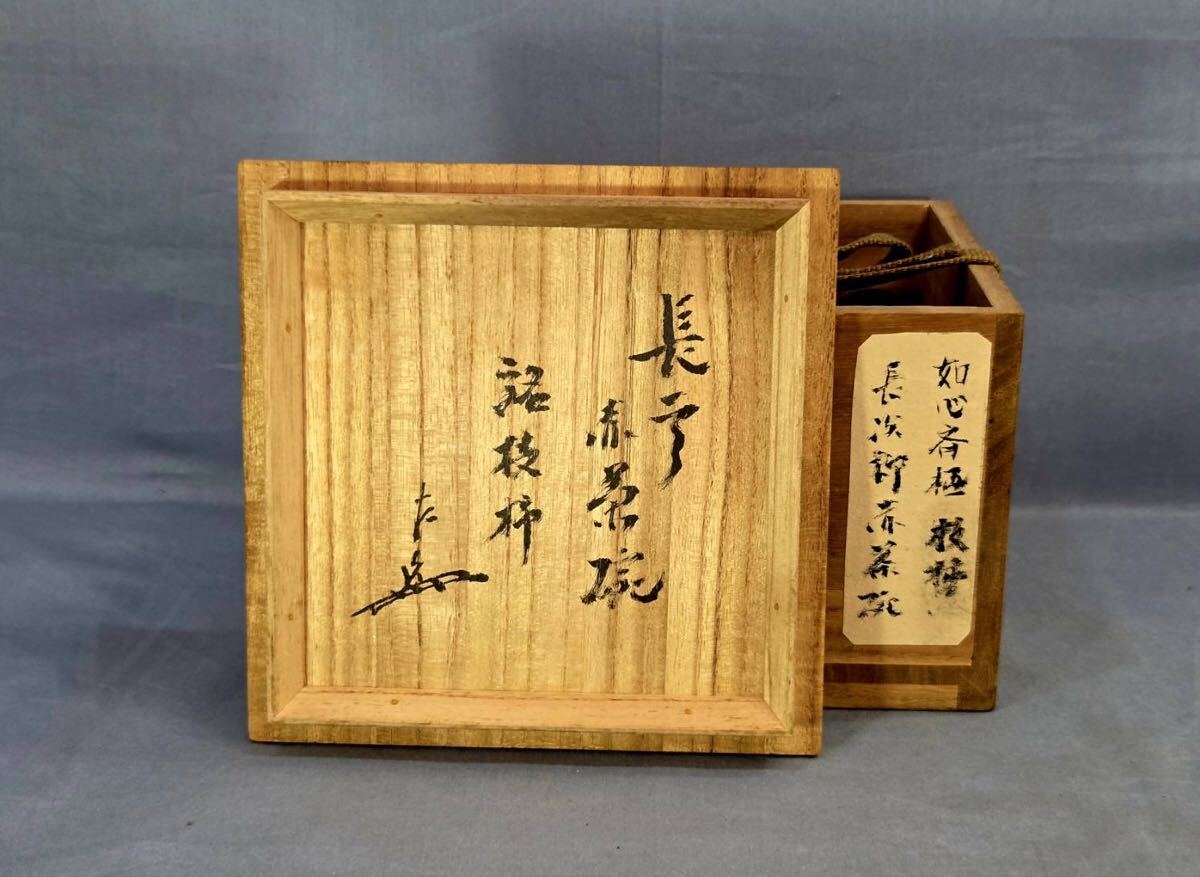 長次郎
赤茶碗
銘枝柿
左
如心斎極 枝柿
長次郎赤茶碗